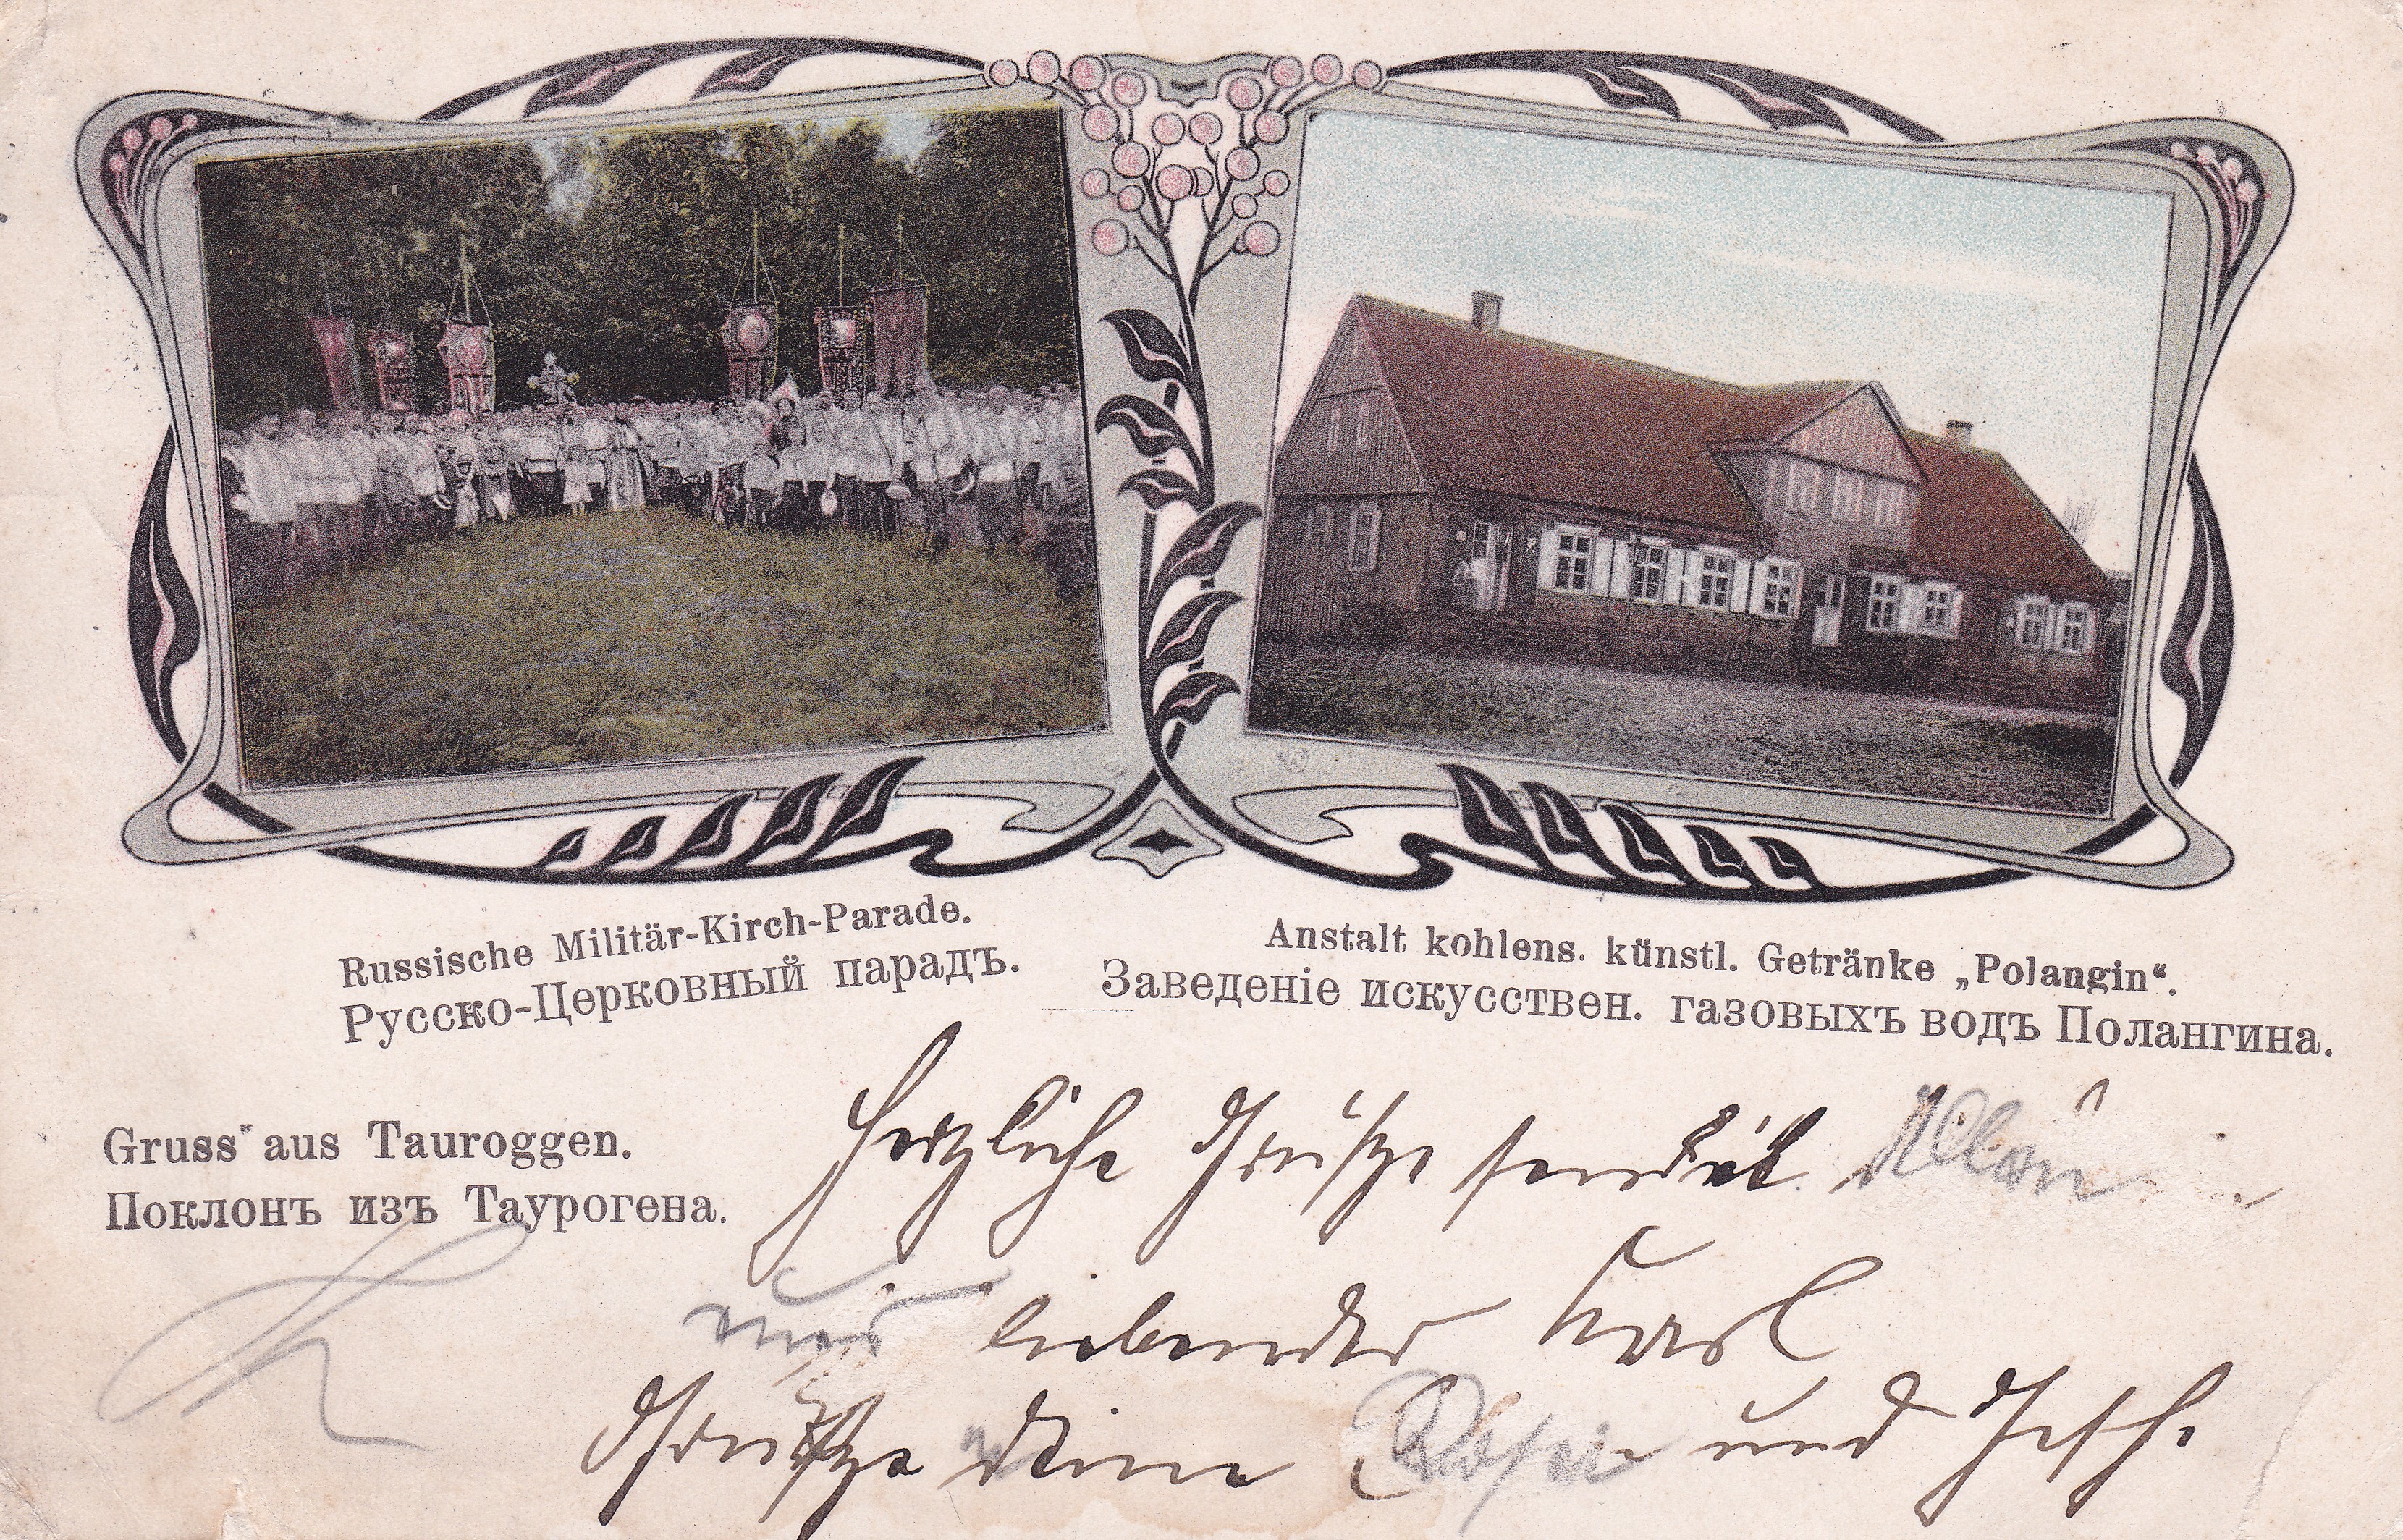 Russische Militär-Kirch-Parade.
Русско-Церковный парадъ.
Anstalt kohlens. künstl. Getränke „Polangin“.
Заведеніе искусствен. газовыхъ водъ Полангина.
Gruss aus Tauroggen.
Поклонъ изъ Таурогена.
Herzliche Grüße sendet
liebender Karl
Grüße deine und